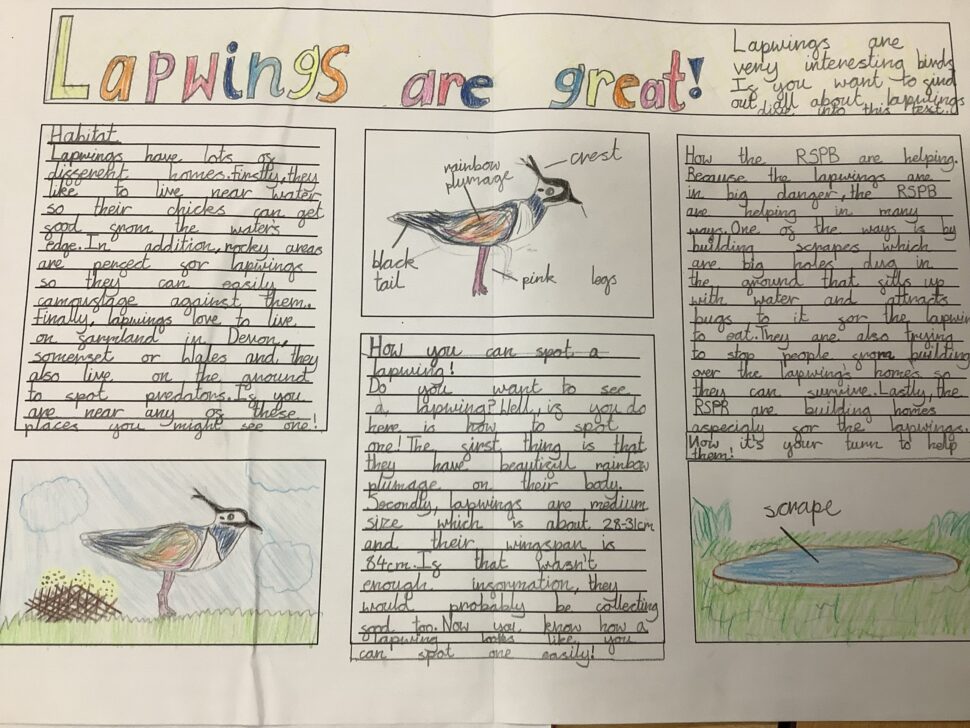 Lapwings are great!
Lapwings are
very interesting birds
If you want to find
out all about lapwings
dive into this text.
Habitat
Lapwings have lots of
different homes. Firstly, they
like to live near water
so their chicks can get
food from the water's
edge. In addition, rocky areas
are perfect for lapwings
so they can easily
camouflage against them.
Finally, lapwings love to live
on farmland in Devon,
somerset or Wales and, they
also live on the ground
to spot predators. If you
are near any of these
places you might see one!
rainbow
plumage
crest
black
tail
pink legs
How you can spot a
lapwing!
Do you want to see
a lapwing? Well, if you do
here is how to spot
one! The first thing is that
they have beautiful rainbow
plumage on their body.
Secondly, lapwings are medium
size which is about 28-31cm
and their wingspan is
84cm. If that wasn't
enough information, they
would probably be collecting
food too. Now you know how a
lapwing looks like you
can spot one easily!
How the RSPB are helping.
Because the lapwings are
in big danger, the RSPB
are helping in many
ways. One of the ways is by
building scrapes which
are big holes dug in
the ground that fills up
with water and attracts
bugs to it for the lapwin
to eat. They are also trying
to stop people from building
over the lapwing's homes so
they can survive. Lastly, the
RSPB are building homes
aspecialy for the lapwings.
Now it's your turn to help
them!
scrape